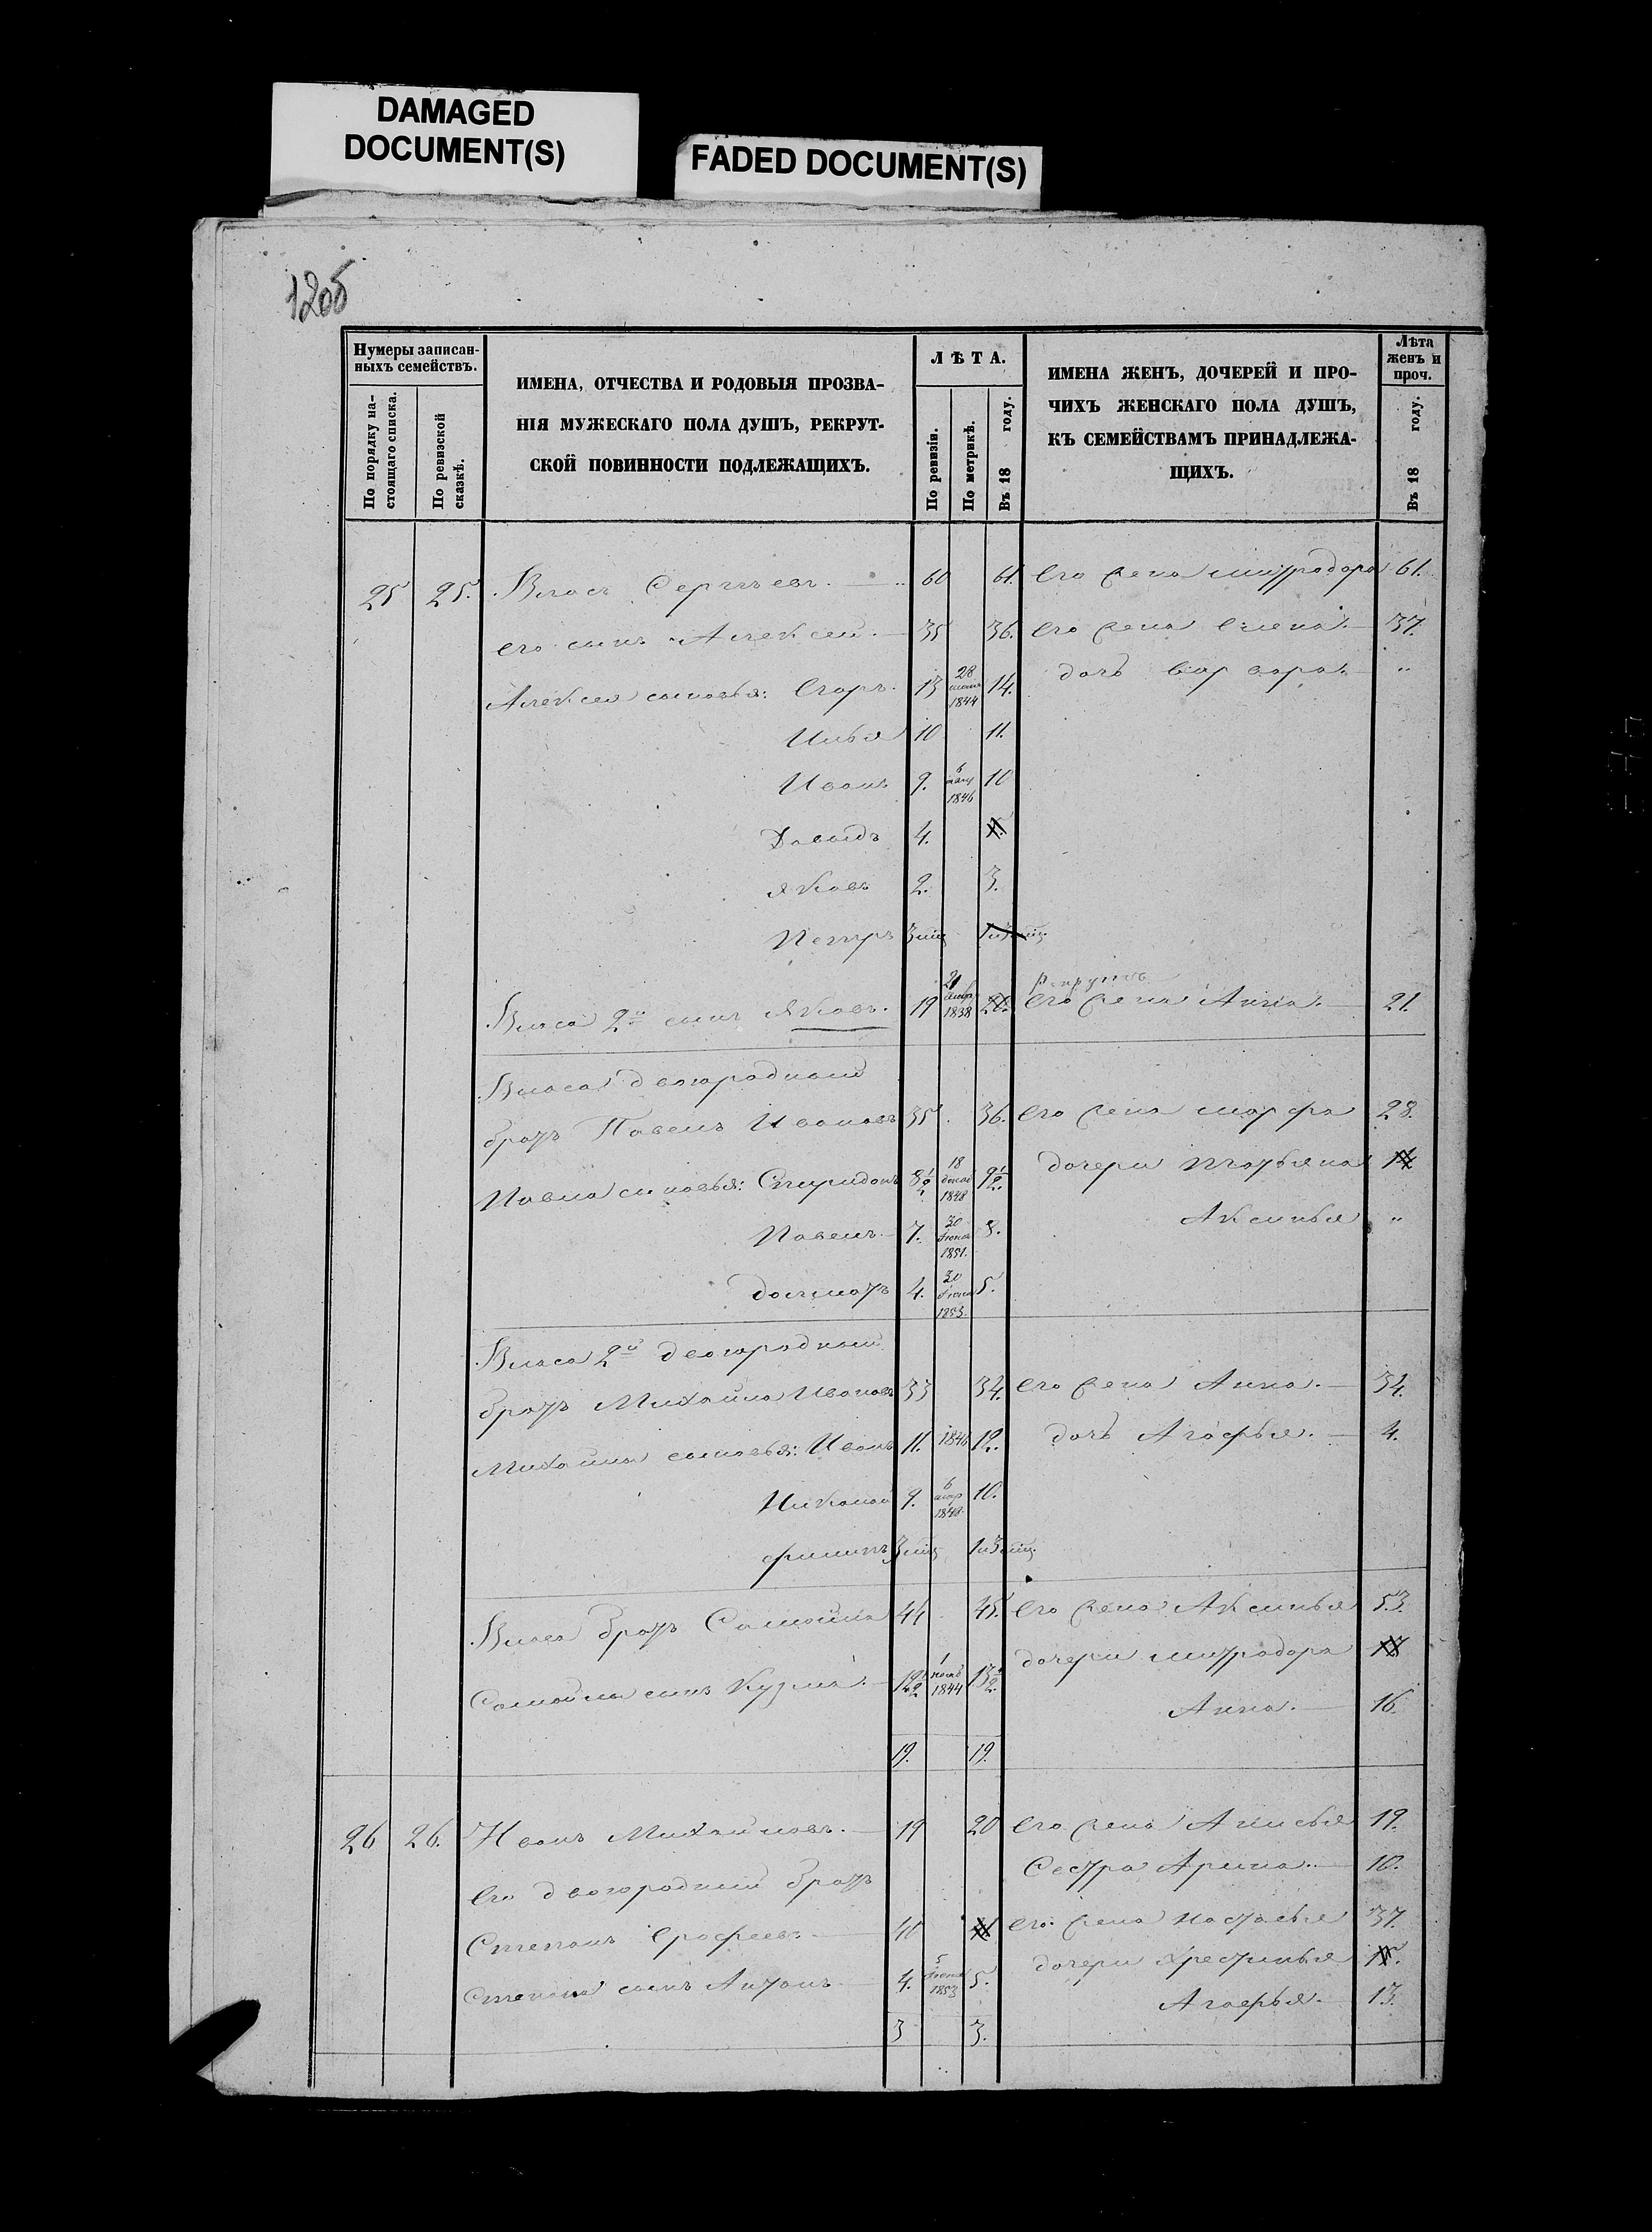 DAMAGED
DOCUMENT(S)
FADED DOCUMENT(S)
120б
Нумеры записан-
ныхъ семействъ.
По порядку на-
стоящаго списка.
По ревизской
сказкѣ.
ИМЕНА, ОТЧЕСТВА И РОДОВЫЯ ПРОЗВА-
НІЯ МУЖЕСКАГО ПОЛА ДУШЪ, РЕКРУТ-
СКОЙ ПОВИННОСТИ ПОДЛЕЖАЩИХЪ.
ЛѢТА.
По ревизіи.
По метрикѣ.
Въ 18 году.
ИМЕНА ЖЕНЪ, ДОЧЕРЕЙ И ПРО-
ЧИХЪ ЖЕНСКАГО ПОЛА ДУШЪ,
КЪ СЕМЕЙСТВАМЪ ПРИНАДЛЕЖА-
ЩИХЪ.
Лѣта
женъ и
проч.
Въ 18 году.
25 25. Власъ Сергѣевъ. 60 61. Его жена Митродора 61.
его сынъ Алексей. 35 36. Его жена Елена. 37.
Алексея сыновья: Егоръ. 13 28 1844 14. дочь Варвара. "
Илья 10 11.
Иванъ 9. 6 1846 10
Давыдъ 4.
Яковъ 2. 3.
Петръ 3 мѣц
рекрутъ
Власа 2й сынъ Яковъ. 19 21 1838 20. Его жена Анна. 21.
Власа двоюродный
братъ Павелъ Ивановъ 35 36. Его жена Марфа 28.
Павла сыновья: Спиридонъ 8½ 18 декаб 1848 9½. дочери Татьяна
Павелъ. 7. 30 Іюня 1851. 8. Аксинья "
Долматъ 4. 30 Іюня 1853. 5.
Власа 2й двоюродный
братъ Михайла Ивановъ 33 34. Его жена Анна. 34.
Михайлы сыновья: Иванъ 11. 1846 12. дочь Агафья. 4.
Николай 9. 6 1848. 10.
Филипъ 3 мѣц 1 и 3 мѣц.
Власа братъ Самойла 44 45. Его жена Аксинья 53.
Самойлы сынъ Кузма. 12½ 1 нояб 1844 13½. дочери Митродора
Анна. 16.
19. 19.
26 26. Иванъ Михайловъ. 19 20 Его жена Анисья 19.
Сестра Арина. 10.
Его двоюродный братъ
Степанъ Ерофеевъ 40 Его жена Настасья 37.
Степана сынъ Антонъ 4. 5 Іюня 1853 5. дочери Хрестинья
Агафья. 13.
3 3.